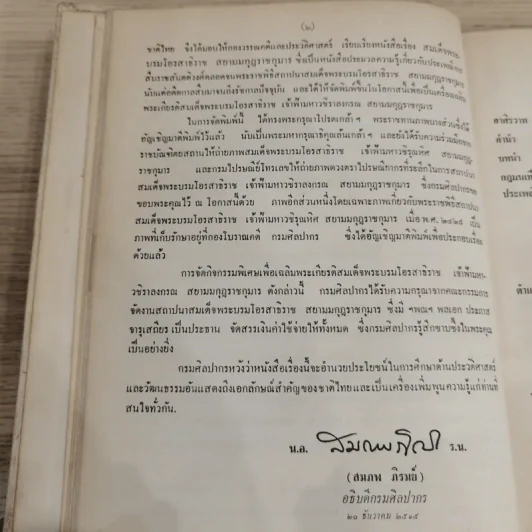 (๒)
ชาติไทย จึงได้มอบให้กองวรรณคดีและประวัติศาสตร์ เรียบเรียงหนังสือเรื่อง สมเด็จพระ-
บรมโอรสาธิราช สยามมกุฎราชกุมาร ซึ่งเป็นหนังสือประมวลความรู้เกี่ยวกับประเพณีการ
สืบราชสันตติวงศ์ตลอดจนพระราชพิธีสถาปนาสมเด็จพระบรมโอรสาธิราช สยามมกุฎราชกุมาร
นับแต่อดีตกาลสืบมาจนถึงรัชกาลปัจจุบัน และได้ให้จัดพิมพ์ขึ้นในโอกาสนี้เพื่อเป็นเครื่องเฉลิม
พระเกียรติสมเด็จพระบรมโอรสาธิราช เจ้าฟ้ามหาวชิราลงกรณ สยามมกุฎราชกุมาร
ในการจัดพิมพ์นี้ ได้ทรงพระกรุณาโปรดเกล้า ฯ พระราชทานภาพบางส่วนซึ่งได้
อัญเชิญมาตีพิมพ์ไว้แล้ว นับเป็นพระมหากรุณาธิคุณล้นเกล้า ฯ และยังได้รับความร่วมมือจาก
ราชบัณฑิตยสถานให้ถ่ายภาพสมเด็จพระบรมโอรสาธิราช เจ้าฟ้ามหาวชิรุณหิศ สยามมกุฎ-
ราชกุมาร และกรมไปรษณีย์โทรเลขให้ถ่ายภาพดวงตราไปรษณียากรที่ระลึกในการสถาปนา
สมเด็จพระบรมโอรสาธิราช เจ้าฟ้ามหาวชิราลงกรณ สยามมกุฎราชกุมาร ซึ่งกรมศิลปากร
ขอบพระคุณไว้ ณ โอกาสนี้ด้วย ภาพอีกส่วนหนึ่งโดยเฉพาะภาพเกี่ยวกับพระราชพิธีสถาปนา
สมเด็จพระบรมโอรสาธิราช เจ้าฟ้ามหาวชิรุณหิศ สยามมกุฎราชกุมาร เมื่อ พ.ศ. ๒๔๒๙ เป็น
ภาพที่เก็บรักษาอยู่ที่กองโบราณคดี กรมศิลปากร ซึ่งได้อัญเชิญมาตีพิมพ์เพื่อประกอบเรื่อง
ด้วยแล้ว
การจัดกิจกรรมพิเศษเพื่อเฉลิมพระเกียรติสมเด็จพระบรมโอรสาธิราช เจ้าฟ้ามหา-
วชิราลงกรณ สยามมกุฎราชกุมาร ดังกล่าวนี้ กรมศิลปากรได้รับความกรุณาจากคณะกรรมการ
จัดงานสถาปนาสมเด็จพระบรมโอรสาธิราช สยามมกุฎราชกุมาร ซึ่งมี ฯพณฯ พลเอก ประภาส
จารุเสถียร เป็นประธาน จัดสรรเงินค่าใช้จ่ายให้ทั้งหมด ซึ่งกรมศิลปากรรู้สึกซาบซึ้งในพระคุณ
เป็นอย่างยิ่ง
กรมศิลปากรหวังว่าหนังสือเรื่องนี้จะอำนวยประโยชน์ในการศึกษาด้านประวัติศาสตร์
และวัฒนธรรมอันแสดงถึงเอกลักษณ์สำคัญของชาติไทยและเป็นเครื่องเพิ่มพูนความรู้แก่ท่านที่
สนใจทั่วกัน.
น.อ. สมภพ ภิรมย์ ร.น.
(สมภพ ภิรมย์)
อธิบดีกรมศิลปากร
๒๐ ธันวาคม ๒๕๑๕
อาศิรวาท
คำนำ
บทนำ
กฎมนเที
ประเพณี